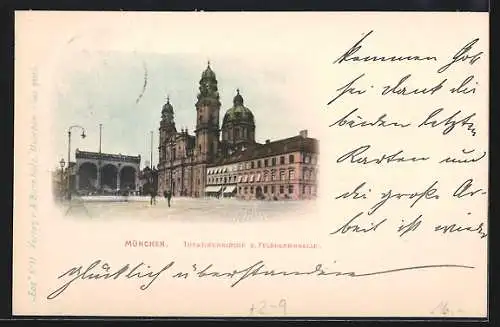 kommen Gott
sei Dank die
beiden letzten
Karten und
die große Ar-
beit ist wieder
MÜNCHEN. THEATINERKIRCHE U. FELDHERRNHALLE.
glücklich überstanden
+2-9
16.-